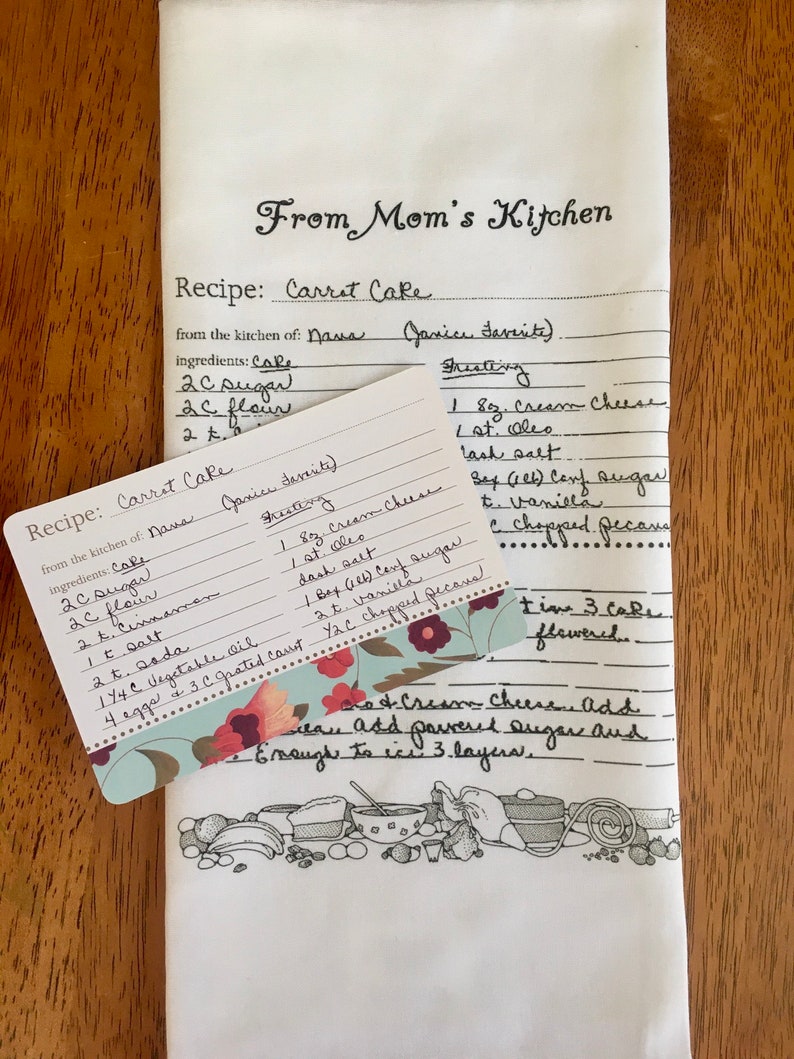 From Mom's Kitchen
Recipe: Carrot Cake
from the kitchen of: Nana (Janice Favorite)
ingredients: Cake Frosting
2 C sugar
2 C flour 1 8oz. Cream Cheese
2 t. 1 st. Oleo
dash salt
Box (1lb) Conf. sugar
t. Vanilla
C chopped pecans
in 3 cake
flowered.
& Cream Cheese. Add
Add powered sugar and
Enough to ice 3 layers.
Recipe: Carrot Cake
from the kitchen of: Nana (Janice Favorite)
ingredients: Cake Frosting
2 C sugar 1 8oz. Cream Cheese
2 C flour 1 st. Oleo
2 t. Cinnamon dash salt
1 t salt 1 Box (1lb) Conf sugar
2 t. soda 2 t. Vanilla
1 1/4 C Vegetable Oil 1/2 C chopped pecans
4 eggs & 3 C grated carrot